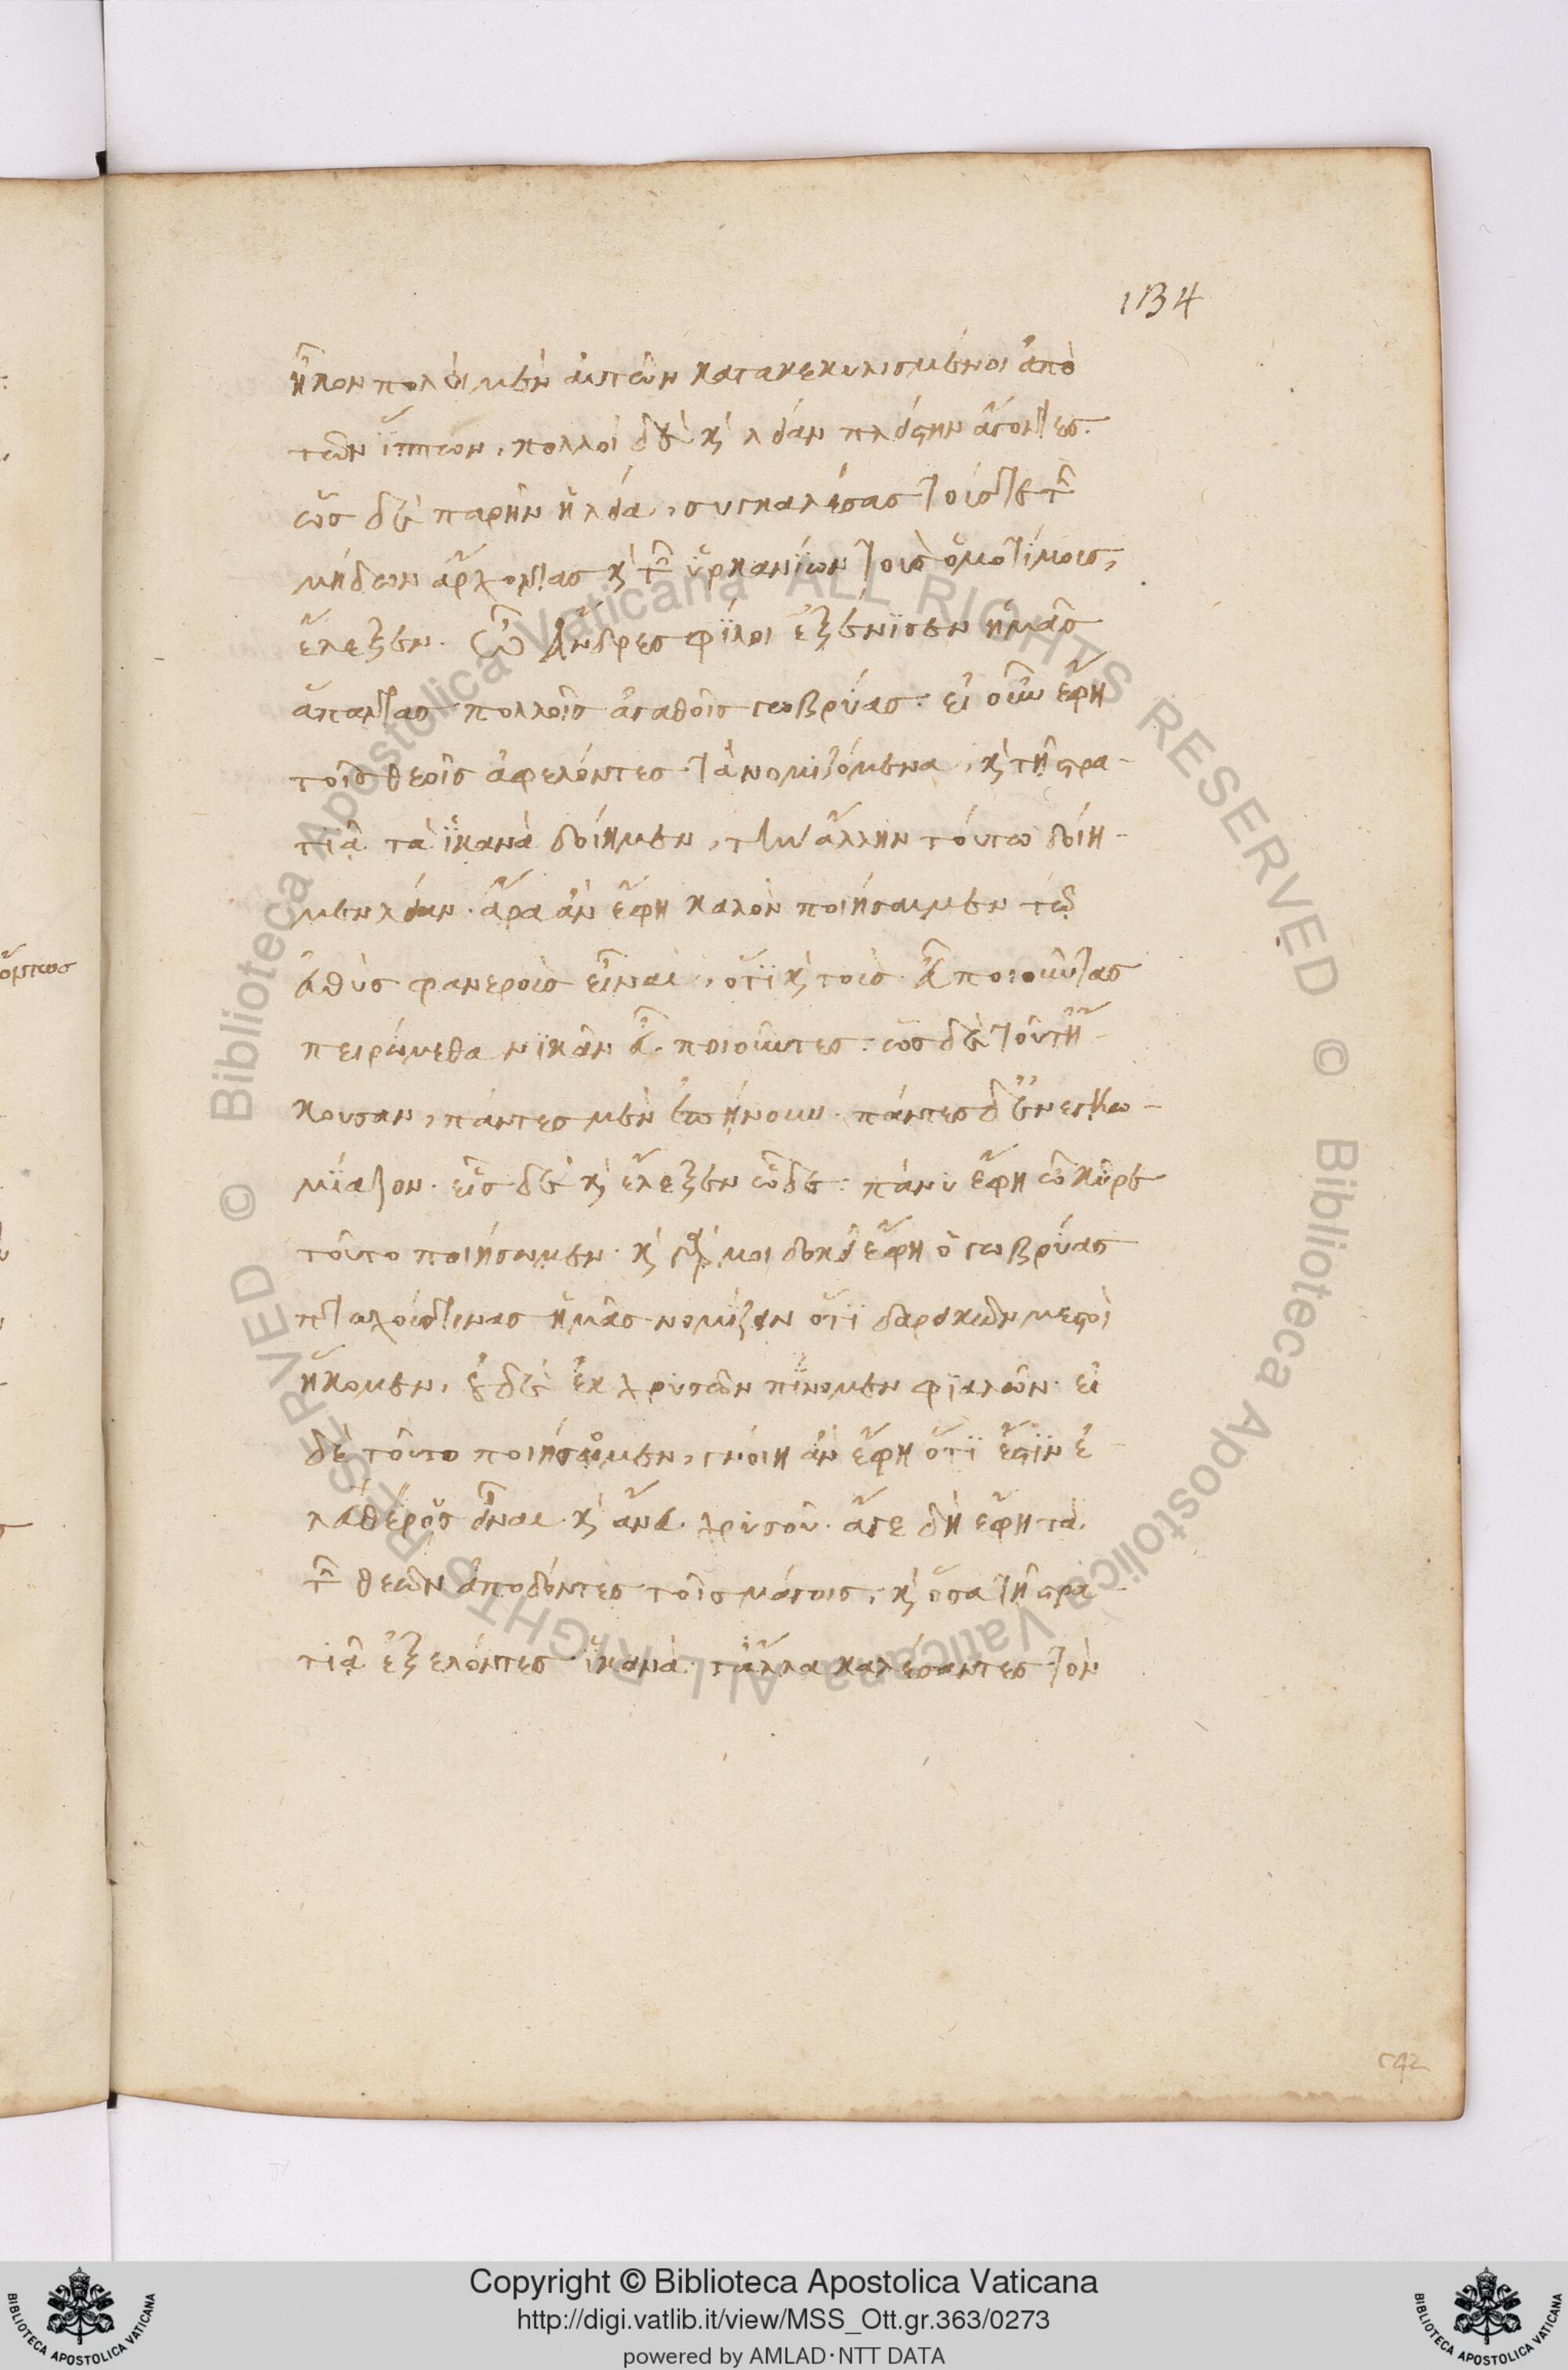 134
ἧκον πολλοὶ μὲν αὐτῶν κατακεκυλισμένοι ἀπὸ
τῶν ἵππων, πολλοὶ δὲ καὶ λείαν πλείστην ἄγοντες.
ὡς δὲ παρῆν ἡ λεία, συγκαλέσας τούς τε τῶν
μήδων ἄρχοντας καὶ τῶν ὑρκανίων τοὺς ὁμοτίμους,
ἔλεξεν. Ὦ Ἄνδρες φίλοι ἐξένισεν ἡμᾶς
ἅπαντας πολλοῖς ἀγαθοῖς γωβρύας. εἰ οὖν ἔφη
τοῖς θεοῖς ἀφελόντες τὰ νομιζόμενα, καὶ τῇ στρα-
τιᾷ τὰ ἱκανὰ δοίημεν, τὴν ἄλλην τούτω δοίη-
μεν λείαν. ἆρα ἂν ἔφη καλὸν ποιήσαιμεν τῷ
εὐθὺς φανεροὶς εἶναι, ὅτι καὶ τοὺς εὖ ποιοῦντας
πειρώμεθα νικᾶν εὖ ποιοῦντες. ὡς δὲ τοῦτ' ἤ-
κουσαν, πάντες μὲν ἐπήνουν. πάντες δ' ἐνεκω-
μίαζον. εἷς δὲ καὶ ἔλεξεν ὧδε. πάνυ ἔφη ὦ κῦρε
τοῦτο ποιήσωμεν. καὶ γάρ μοι δοκεῖ ἔφη ὁ γωβρύας
πτωχούς τινας ἡμᾶς νομίζειν ὅτι δαρεικῶν μεστοὶ
ἥκομεν, οὐδὲ ἐκ χρυσῶν πίνομεν φιαλῶν. εἰ
δὲ τοῦτο ποιήσωμεν, γνοίη ἂν ἔφη ὅτι ἔστιν ἐ
λευθέρους εἶναι καὶ ἄνευ χρυσοῦ. ἄγε δὴ ἔφη τὰ
τῶν θεῶν ἀποδόντες τοῖς μάγοις, καὶ ὅσα τῇ στρα-
τιᾷ ἐξελόντες ἱκανὰ τἆλλα καλέσαντες τὸν
Copyright © Biblioteca Apostolica Vaticana
http://digi.vatlib.it/view/MSS_Ott.gr.363/0273
powered by AMLAD·NTT DATA